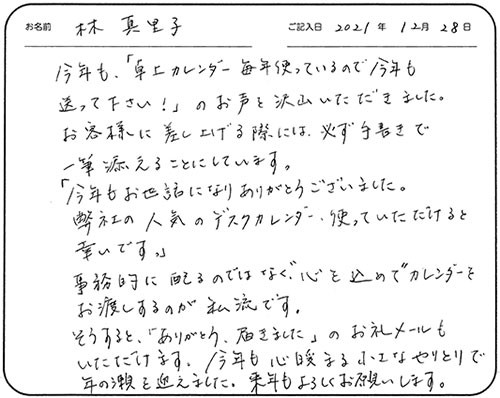 お名前 林 真里子 ご記入日 2021年 12月 28日
今年も、「卓上カレンダー毎年使っているので今年も
送って下さい!」のお声を沢山いただきました。
お客様に差し上げる際には、必ず手書きで
一筆添えることにしています。
「今年もお世話になりありがとうございました。
弊社の人気のデスクカレンダー、使っていただけると
幸いです。」
事務的に配るのではなく、心を込めてカレンダーを
お渡しするのが私流です。
そうすると、「ありがとう、届きました」のお礼メールも
いただけます。今年も心暖まる小さなやりとりで
年の瀬を迎えました。来年もよろしくお願いします。